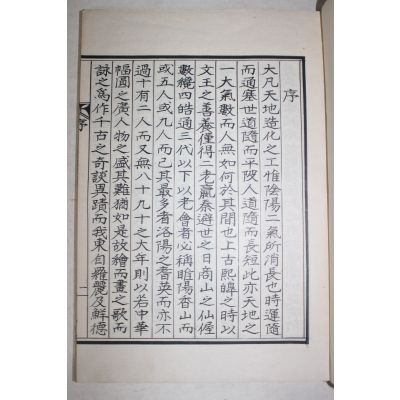 序
大凡天地造化之工惟陰陽二氣所消長也時運隨
而通塞世道隨而平陂人道隨而長短此亦天地之
一大氣數而人無如何於其間也上古熙皥之時以
文王之善養僅得二老嬴秦避世之日商山之仙僅
數纔四皓通三代以下以老會者必稱睢陽香山而
或五人或九人而已其最多者洛陽之耆英而亦不
過十有二人而又無八十九十之大年則以若中華
幅圓之廣人物之盛其難猶如是故繪而畫之歌而
詠之爲作千古之奇談異蹟而我東自羅麗及鮮德
序